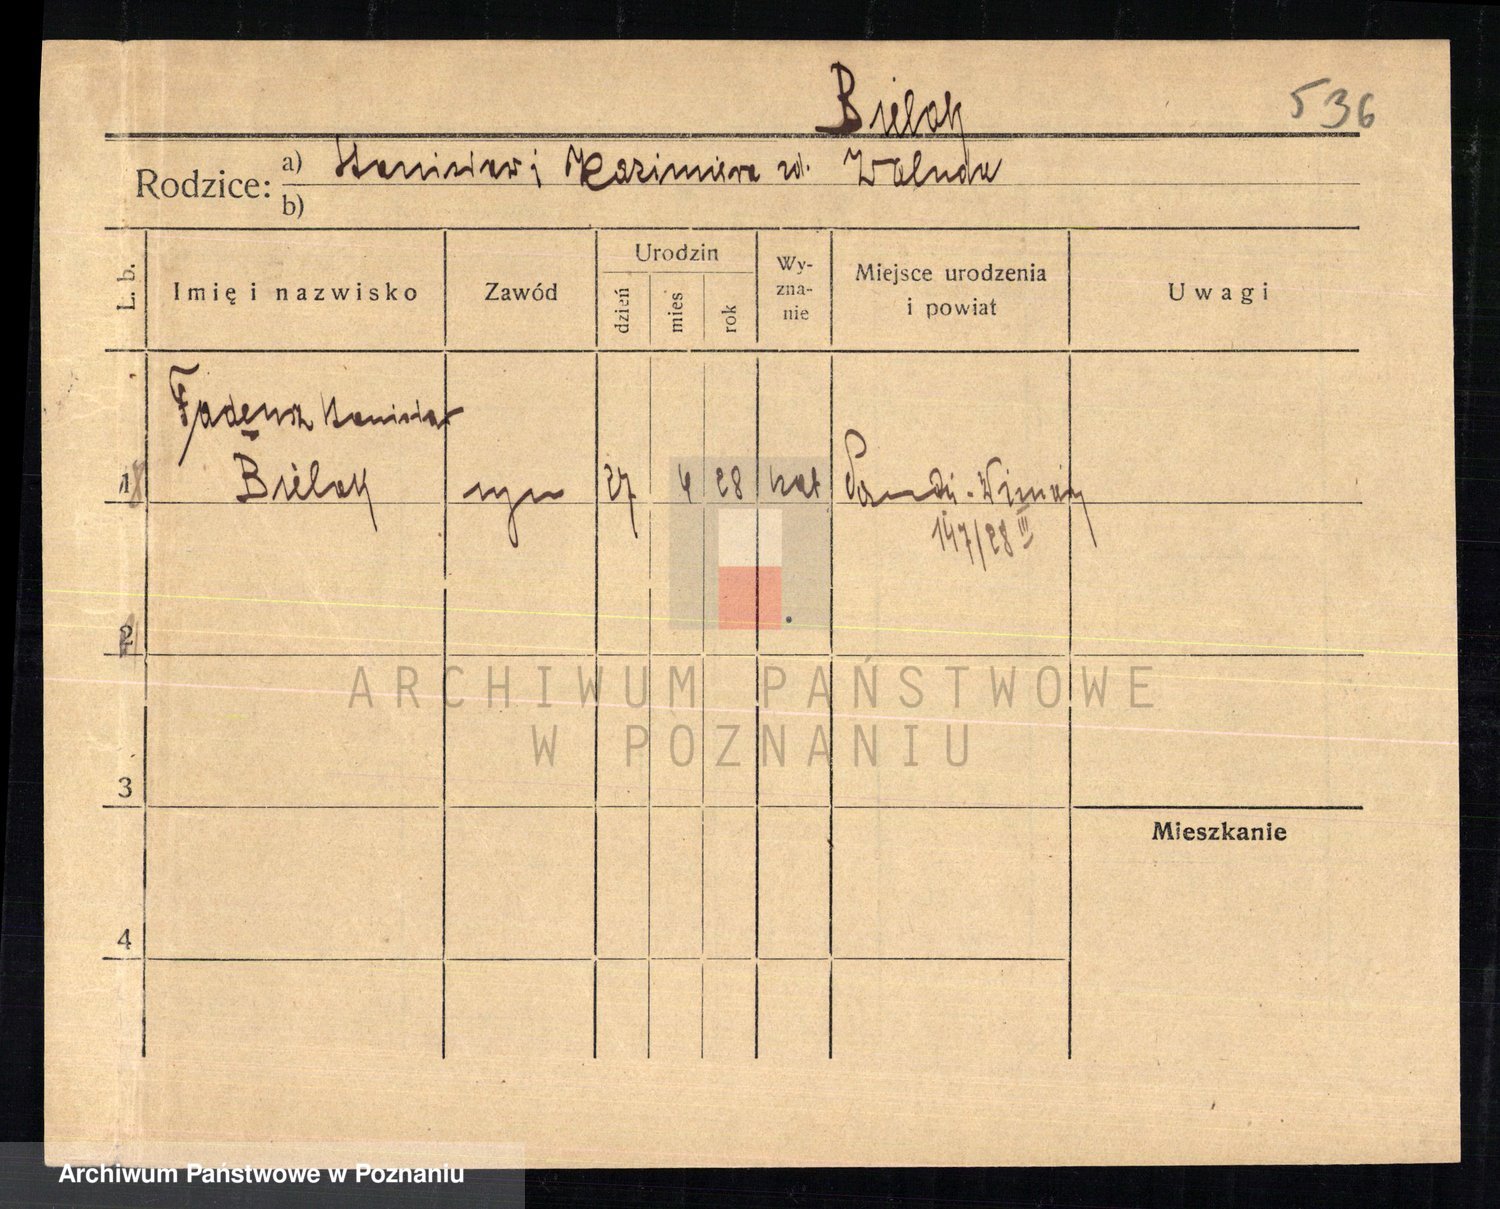 Bielak
536
Rodzice: a) Stanisław i Kazimiera zd.
b)
L. b.
Imię i nazwisko
Zawód
Urodzin
dzień
mies
rok
Wy-
zna-
nie
Miejsce urodzenia
i powiat
Uwagi
Tadeusz Stanisław
1 Bielak syn 27 4 28 kat
147/28 III
2
3
4
Mieszkanie
ARCHIWUM PAŃSTWOWE
W POZNANIU
Archiwum Państwowe w Poznaniu